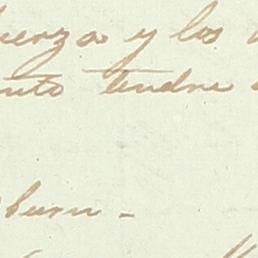 uerza y los
nto tendre
burn -